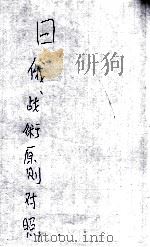 日俄战術原则对照